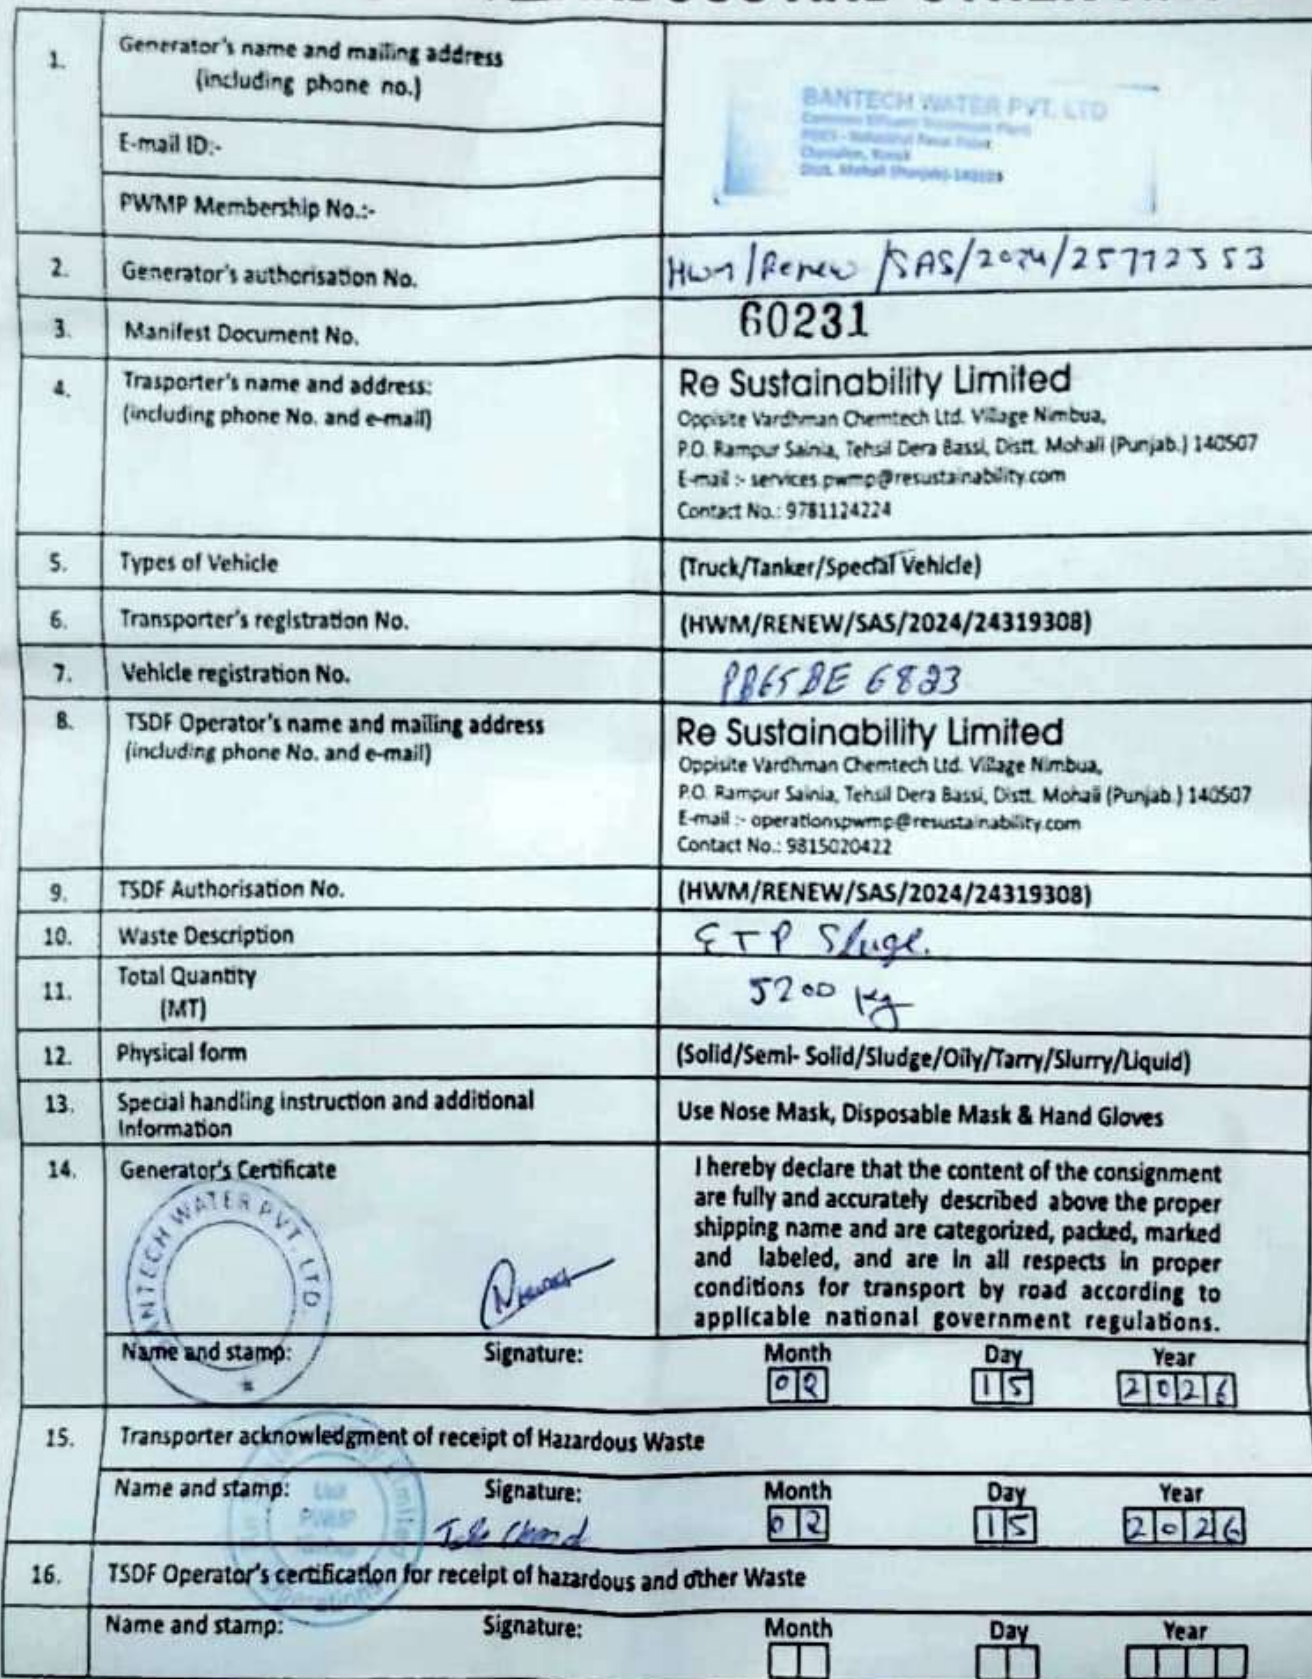 1. Generator's name and mailing address
(including phone no.)
BANTECH WATER PVT. LTD
Common Effluent Treatment Plant
Dist. Mohali (Punjab)
E-mail ID:-
PWMP Membership No.:-
2. Generator's authorisation No. /Renew /SAS/2024/25772553
3. Manifest Document No. 60231
4. Trasporter's name and address:
(including phone No. and e-mail)
Re Sustainability Limited
Oppisite Vardhman Chemtech Ltd. Village Nimbua,
P.O. Rampur Sainia, Tehsil Dera Bassi, Distt. Mohali (Punjab.) 140507
E-mail :- services.pwmp@resustainability.com
Contact No.: 9781124224
5. Types of Vehicle (Truck/Tanker/Special Vehicle)
6. Transporter's registration No. (HWM/RENEW/SAS/2024/24319308)
7. Vehicle registration No. PB65BE 6823
8. TSDF Operator's name and mailing address
(including phone No. and e-mail)
Re Sustainability Limited
Oppisite Vardhman Chemtech Ltd. Village Nimbua,
P.O. Rampur Sainia, Tehsil Dera Bassi, Distt. Mohali (Punjab.) 140507
E-mail :- operationspwmp@resustainability.com
Contact No.: 9815020422
9. TSDF Authorisation No. (HWM/RENEW/SAS/2024/24319308)
10. Waste Description ETP Sluge.
11. Total Quantity
(MT)
5200 kg
12. Physical form (Solid/Semi- Solid/Sludge/Oily/Tarry/Slurry/Liquid)
13. Special handling instruction and additional
Information
Use Nose Mask, Disposable Mask & Hand Gloves
14. Generator's Certificate
BANTECH WATER PVT. LTD.
I hereby declare that the content of the consignment
are fully and accurately described above the proper
shipping name and are categorized, packed, marked
and labeled, and are in all respects in proper
conditions for transport by road according to
applicable national government regulations.
Name and stamp: Signature: Month Day Year
02 15 2026
15. Transporter acknowledgment of receipt of Hazardous Waste
Name and stamp: Signature: Month Day Year
Unit
PWMP
Chand
02 15 2026
Operations
16. TSDF Operator's certification for receipt of hazardous and other Waste
Name and stamp: Signature: Month Day Year